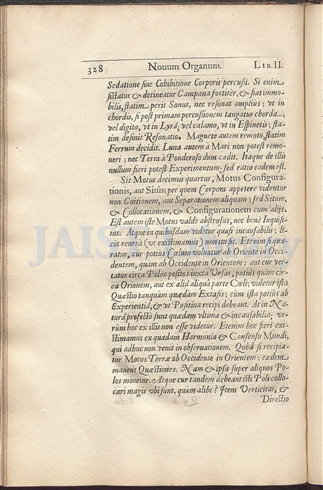 328 Novum Organum. LIB. II.
Sedatione siue Cohibitione Corporis percussi. Si enim
sistatur & detineatur Campana fortiter, & fiat immo-
bilis, statim perit Sonus, nec resonat amplius; vt in
chordis, si post primam percussionem tangatur chorda,
vel digito, vt in Lyrâ; vel calamo, vt in Espinetis; sta-
tim desinit Resonatio. Magnete autem remoto, statim
Ferrum decidit. Luna autem à Mari non potest remo-
ueri; nec Terra à Ponderoso dum cadit. Itaque de illis
nullum fieri potest Experimentum; sed ratio eadem est.
Sit Motus decimus quartus, Motus Configura-
tionis, aut Sitûs; per quem Corpora appetere videntur
non Coitionem, aut Separationem aliquam; sed Situm,
& Collocationem, & Configurationem cum alijs.
Est autem iste Motus valdè abstrusus, nec benè Inquisi-
tus. Atque in quibusdam videtur quasi incausabilis; li-
cèt reuerâ (vt existimamus) non ita sit. Etenim si quæ-
ratur, cur potiùs Cœlum voluatur ab Oriente in Occi-
dentem, quàm ab Occidente in Orientem: aut cur ver-
tatur circa Polos positos iuxta Vrsas, potiùs quàm cir-
ca Orionem, aut ex aliâ aliquâ parte Cœli; videtur ista
Quæstio tanquam quædam Extasis; cùm ista potiùs ab
Experientiâ, & vt Positiua recipi debeant. At in Na-
turâ profectò sunt quædam vltima & incausabilia; ve-
rùm hoc ex illis non esse videtur. Etenim hoc fieri exi-
stimamus ex quadam Harmoniâ & Consensu Mundi,
qui adhuc non venit in obseruationem. Quòd si recipia-
tur Motus Terræ ab Occidente in Orientem; eædem
manent Quæstiones. Nam & ipsa super aliquos Po-
los mouetur. Atque cur tandem debeant isti Poli collo-
cari magis vbi sunt, quàm alibi? Item Verticitas, &
Directio
JAIST Library